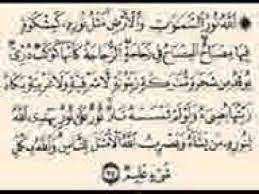 ۞ ٱللَّهُ نُورُ ٱلسَّمَٰوَٰتِ وَٱلْأَرْضِ مَثَلُ نُورِهِۦ كَمِشْكَوٰةٍ
فِيهَا مِصْبَاحٌ ٱلْمِصْبَاحُ فِى زُجَاجَةٍ ٱلزُّجَاجَةُ كَأَنَّهَا كَوْكَبٌ دُرِّىٌّ
يُوقَدُ مِن شَجَرَةٍ مُّبَٰرَكَةٍ زَيْتُونَةٍ لَّا شَرْقِيَّةٍ وَلَا غَرْبِيَّةٍ يَكَادُ
زَيْتُهَا يُضِىٓءُ وَلَوْ لَمْ تَمْسَسْهُ نَارٌ نُّورٌ عَلَىٰ نُورٍ يَهْدِى ٱللَّهُ
لِنُورِهِۦ مَن يَشَآءُ وَيَضْرِبُ ٱللَّهُ ٱلْأَمْثَٰلَ لِلنَّاسِ وَٱللَّهُ بِكُلِّ
شَىْءٍ عَلِيمٌ ٣٥